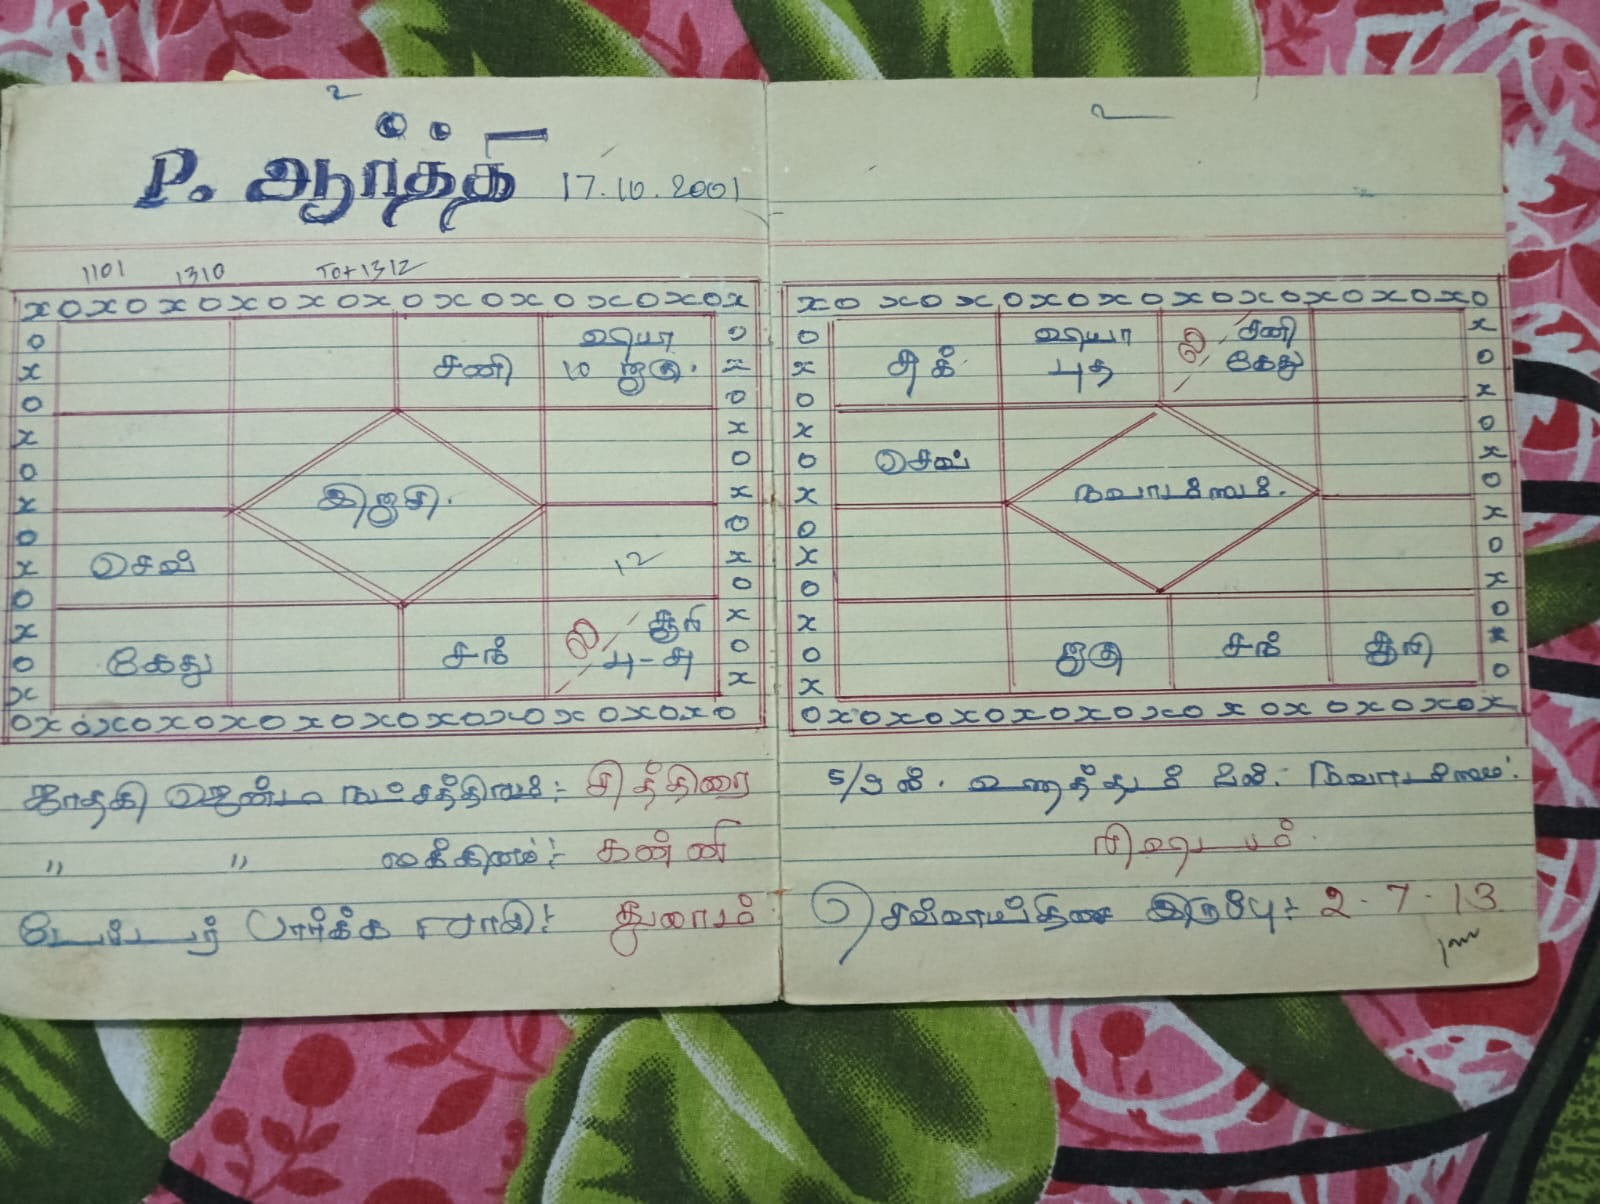 உ
P. ஆர்த்தி 17.10.2001
1101 1310 Tot 1312
சனி
ராகு
10 குரு.
இராசி.
செவ்
12
கேது
சந்
ல
சூரி
பு-சு
உ
சுக்
ராகு
புத
ல
சனி
கேது
செவ்
நவாம்சம்.
குரு
சந்
சூரி
ஜாதகி ஜென்ம நட்சத்திரம்:- சித்திரை
" " லக்கினம்:- கன்னி
பார்க்க ராசி:- துலாம்
நவாம்சம்:
ரிஷபம்.
செவ்வாய்திசை இருப்பு:- 2-7-13